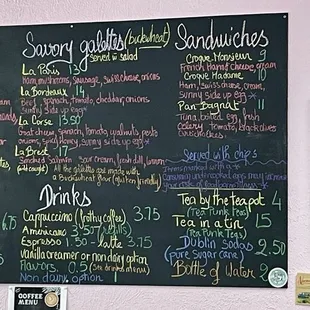 Savory galettes (buckwheat)
Served w salad
La Paris 13
Ham, mushrooms, Sausage, Swiss cheese, onions
La Bordeaux 14
Beef, spinach, tomato, cheddar, onions
Sunny side up egg
La Corse 13.50
Goat cheese, spinach, tomato, walnuts, pesto
onions, spicy honey, sunny side up egg
La Brest 17
Smoked Salmon, Sour cream, fresh dill, lemon
All the galettes are made with
a Buckwheat flour (gluten friendly)
Drinks
Cappuccino (frothy coffee) 3.75
Americano 3.50 (refills)
Espresso 1.50 - latte 3.75
Vanilla creamer or non dairy option
Flavors 0.5
Non dairy option
Sandwiches
Croque Monsieur 9
French Ham & cheese, cream
Croque Madame 10
Ham, Swiss cheese, cream,
Sunny side up egg
Pan Bagnat 11
Tuna, boiled egg, fresh
Celery, tomato, black olives
Served with chips
Tea by the teapot 4
(Tea Punk Teas)
Tea in a tin 15
(Tea Punk Teas)
Dublin Sodas 2.50
(pure Sugar cane)
Bottle of Water 2
4.75
COFFEE
MENU